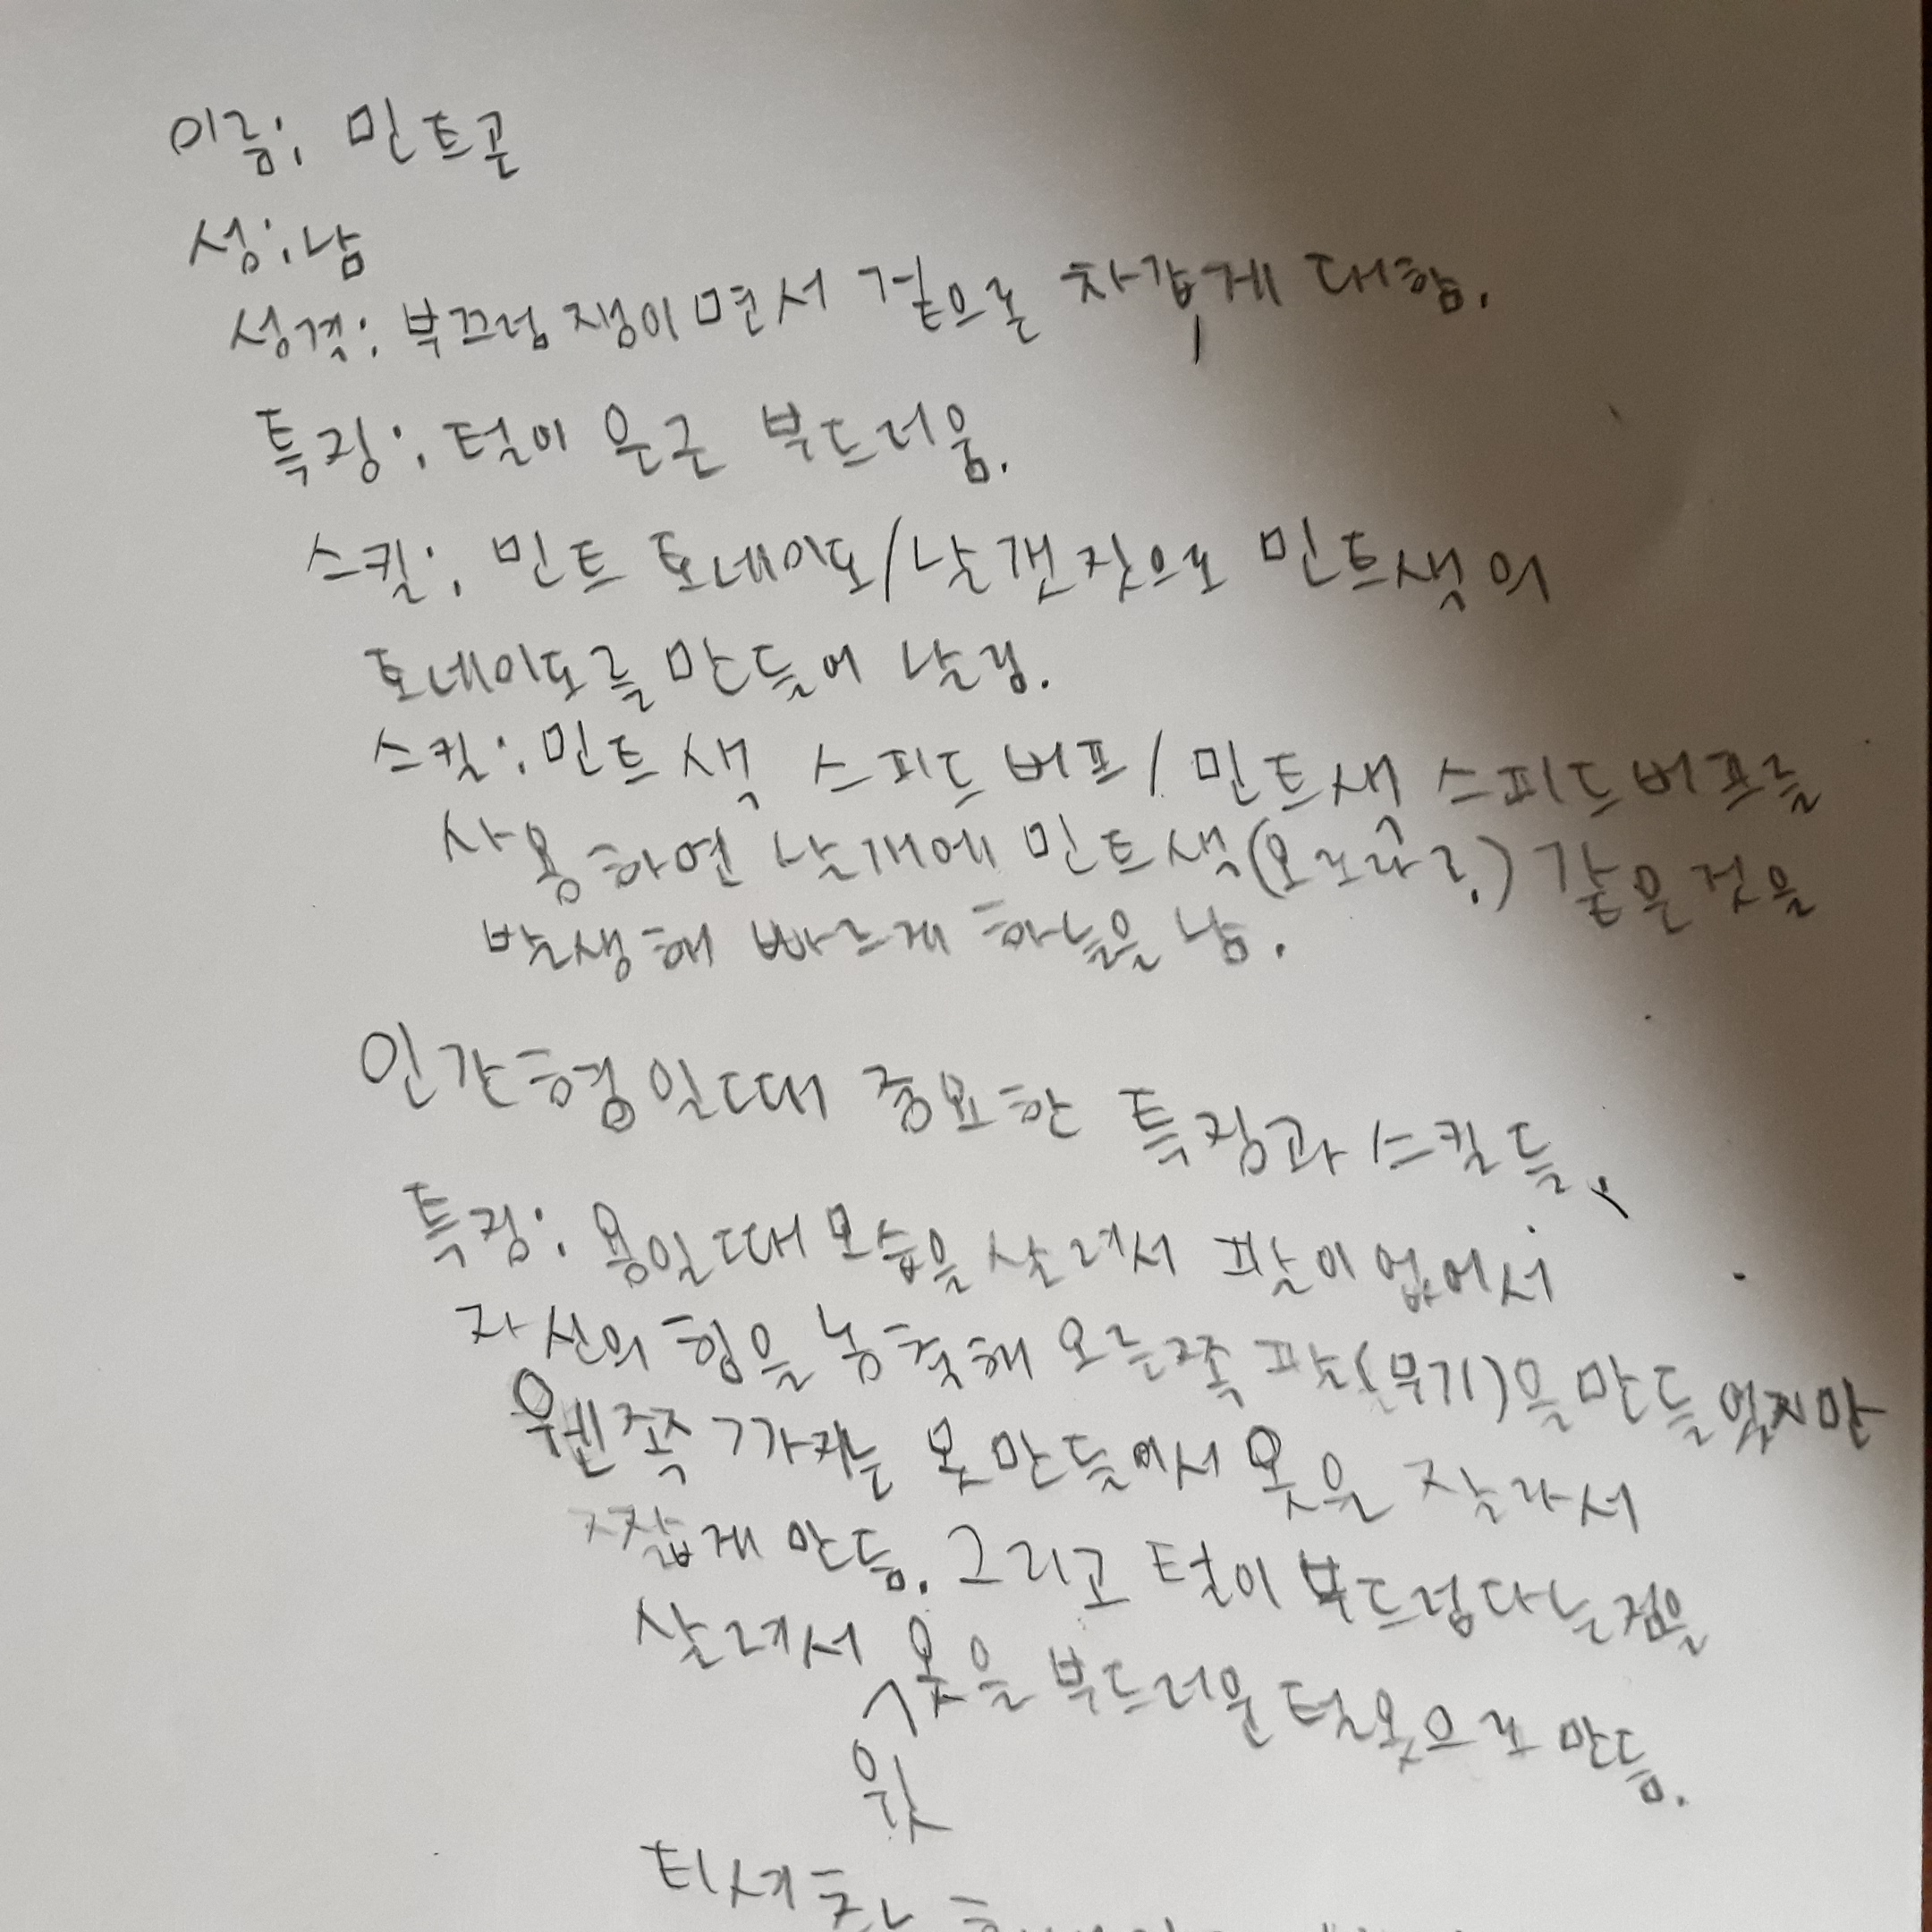 이름: 민트곤
성: 남
성격: 부끄럼쟁이면서 겉으로 차갑게 대함.
특징: 털이 은근 부드러움.
스킬: 민트 토네이도/날갯짓으로 민트색의
토네이도를 만들어 날림.
스킬: 민트색 스피드 버프/민트색 스피드버프를
사용하면 날개에 민트색(오로라?) 같은것을
발생해 빠르게 하늘을 남.
인간형일때 중요한 특징과 스킬들.
특징: 용일때 모습을 살려서 팔이 없어서
자신의 힘을 농축해 오른쪽 팔(무기)을 만들었지만
왼쪽까지는 못만들어서 옷을 잘라서
짧게 만듬. 그리고 털이 부드럽다는점을
살려서 옷을 부드러운 털옷으로 만듬.
윗